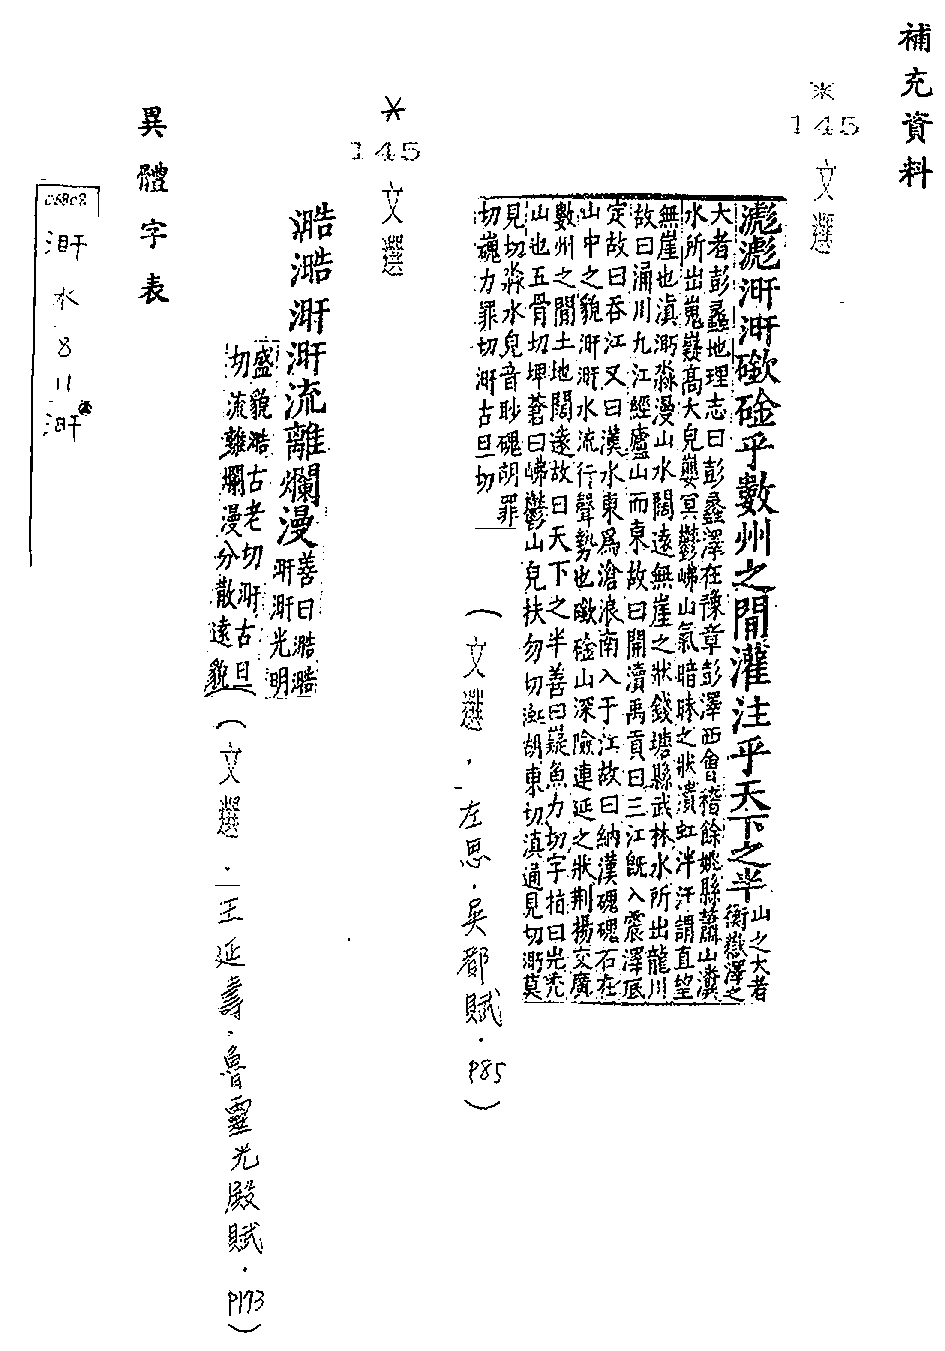 補充資料
＊
145
文選
滮滮涆涆礉硶乎數州之閒灌注乎天下之半山之大者衡嶽澤之
大者彭蠡地理志曰彭蠡澤在豫章彭澤西會稽餘姚縣蕭山潹
水所出嵬嶷高大皃㜝冥鬱岪山氣暗昧之狀潰虹泮汗謂直望
無崖也滇㴐淼漫山水闊遠無崖之狀錢塘縣武林水所出龍川
故曰涌川九江經廬山而東故曰開瀆禹貢曰三江旣入震澤厎
定故曰吞江又曰漢水東爲滄浪南入于江故曰納漢磈磈石在
山中之貌涆涆水流行聲勢也礉硶山深險連延之狀荆揚交廣
數州之閒土地闊遠故曰天下之半善曰嶷魚力切字指曰屼禿
山也五骨切埤蒼曰岪鬱山皃扶勿切虹胡東切滇通見切㴐莫
見切淼水皃音眇磈胡罪
切巍力罪切涆古旦切
（文選．左思．吳都賦．P85）
＊
145
文選
澔澔涆涆流離爛漫善曰澔澔涆涆光明
盛貌澔古老切涆古旦
切流離爛漫分散遠貌
（文選．王延壽．魯靈光殿賦．P173）
異體字表
涆
水
8
11
涆